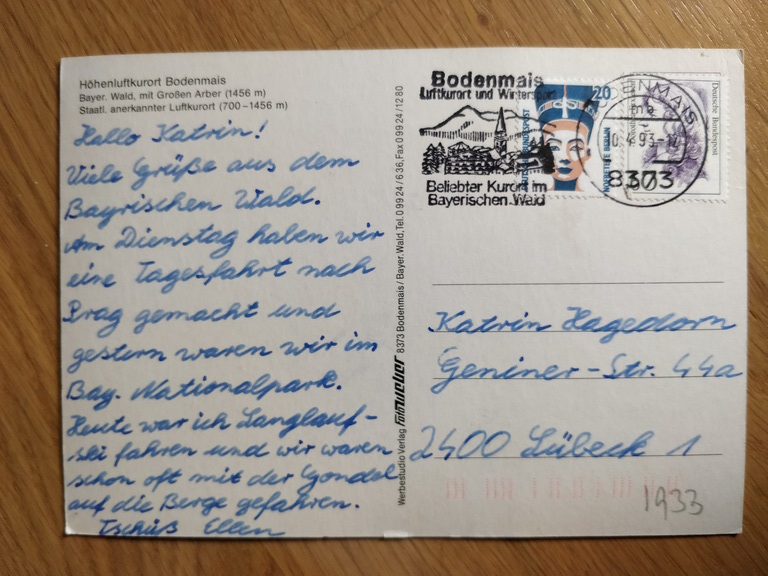 Höhenluftkurort Bodenmais
Bayer. Wald, mit Großen Arber (1456 m)
Staatl. anerkannter Luftkurort (700–1456 m)
Hallo Katrin!
Viele Grüße aus dem
Bayrischen Wald.
Am Dienstag haben wir
eine Tagesfahrt nach
Prag gemacht und
gestern waren wir im
Bay. Nationalpark.
Heute war ich Langlauf-
ski fahren und wir waren
schon oft mit der Gondel
auf die Berge gefahren.
Tschüß Ellen
Werbestudio Verlag foto weber 8373 Bodenmais / Bayer. Wald, Tel. 0 99 24 / 6 36, Fax 0 99 24 / 12 80
Bodenmais
Luftkurort und Wintersport
Beliebter Kurort im
Bayerischen Wald
20
DEUTSCHE BUNDESPOST
NOFRETETE BERLIN
BODENMAIS
mb
0.4.93-1
8373
Deutsche Bundespost
Katrin Hagedorn
Geniner-Str. 44a
2400 Lübeck 1
1933